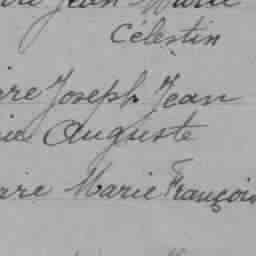 Jean Marie
Célestin
Joseph Jean
Auguste
Marie François